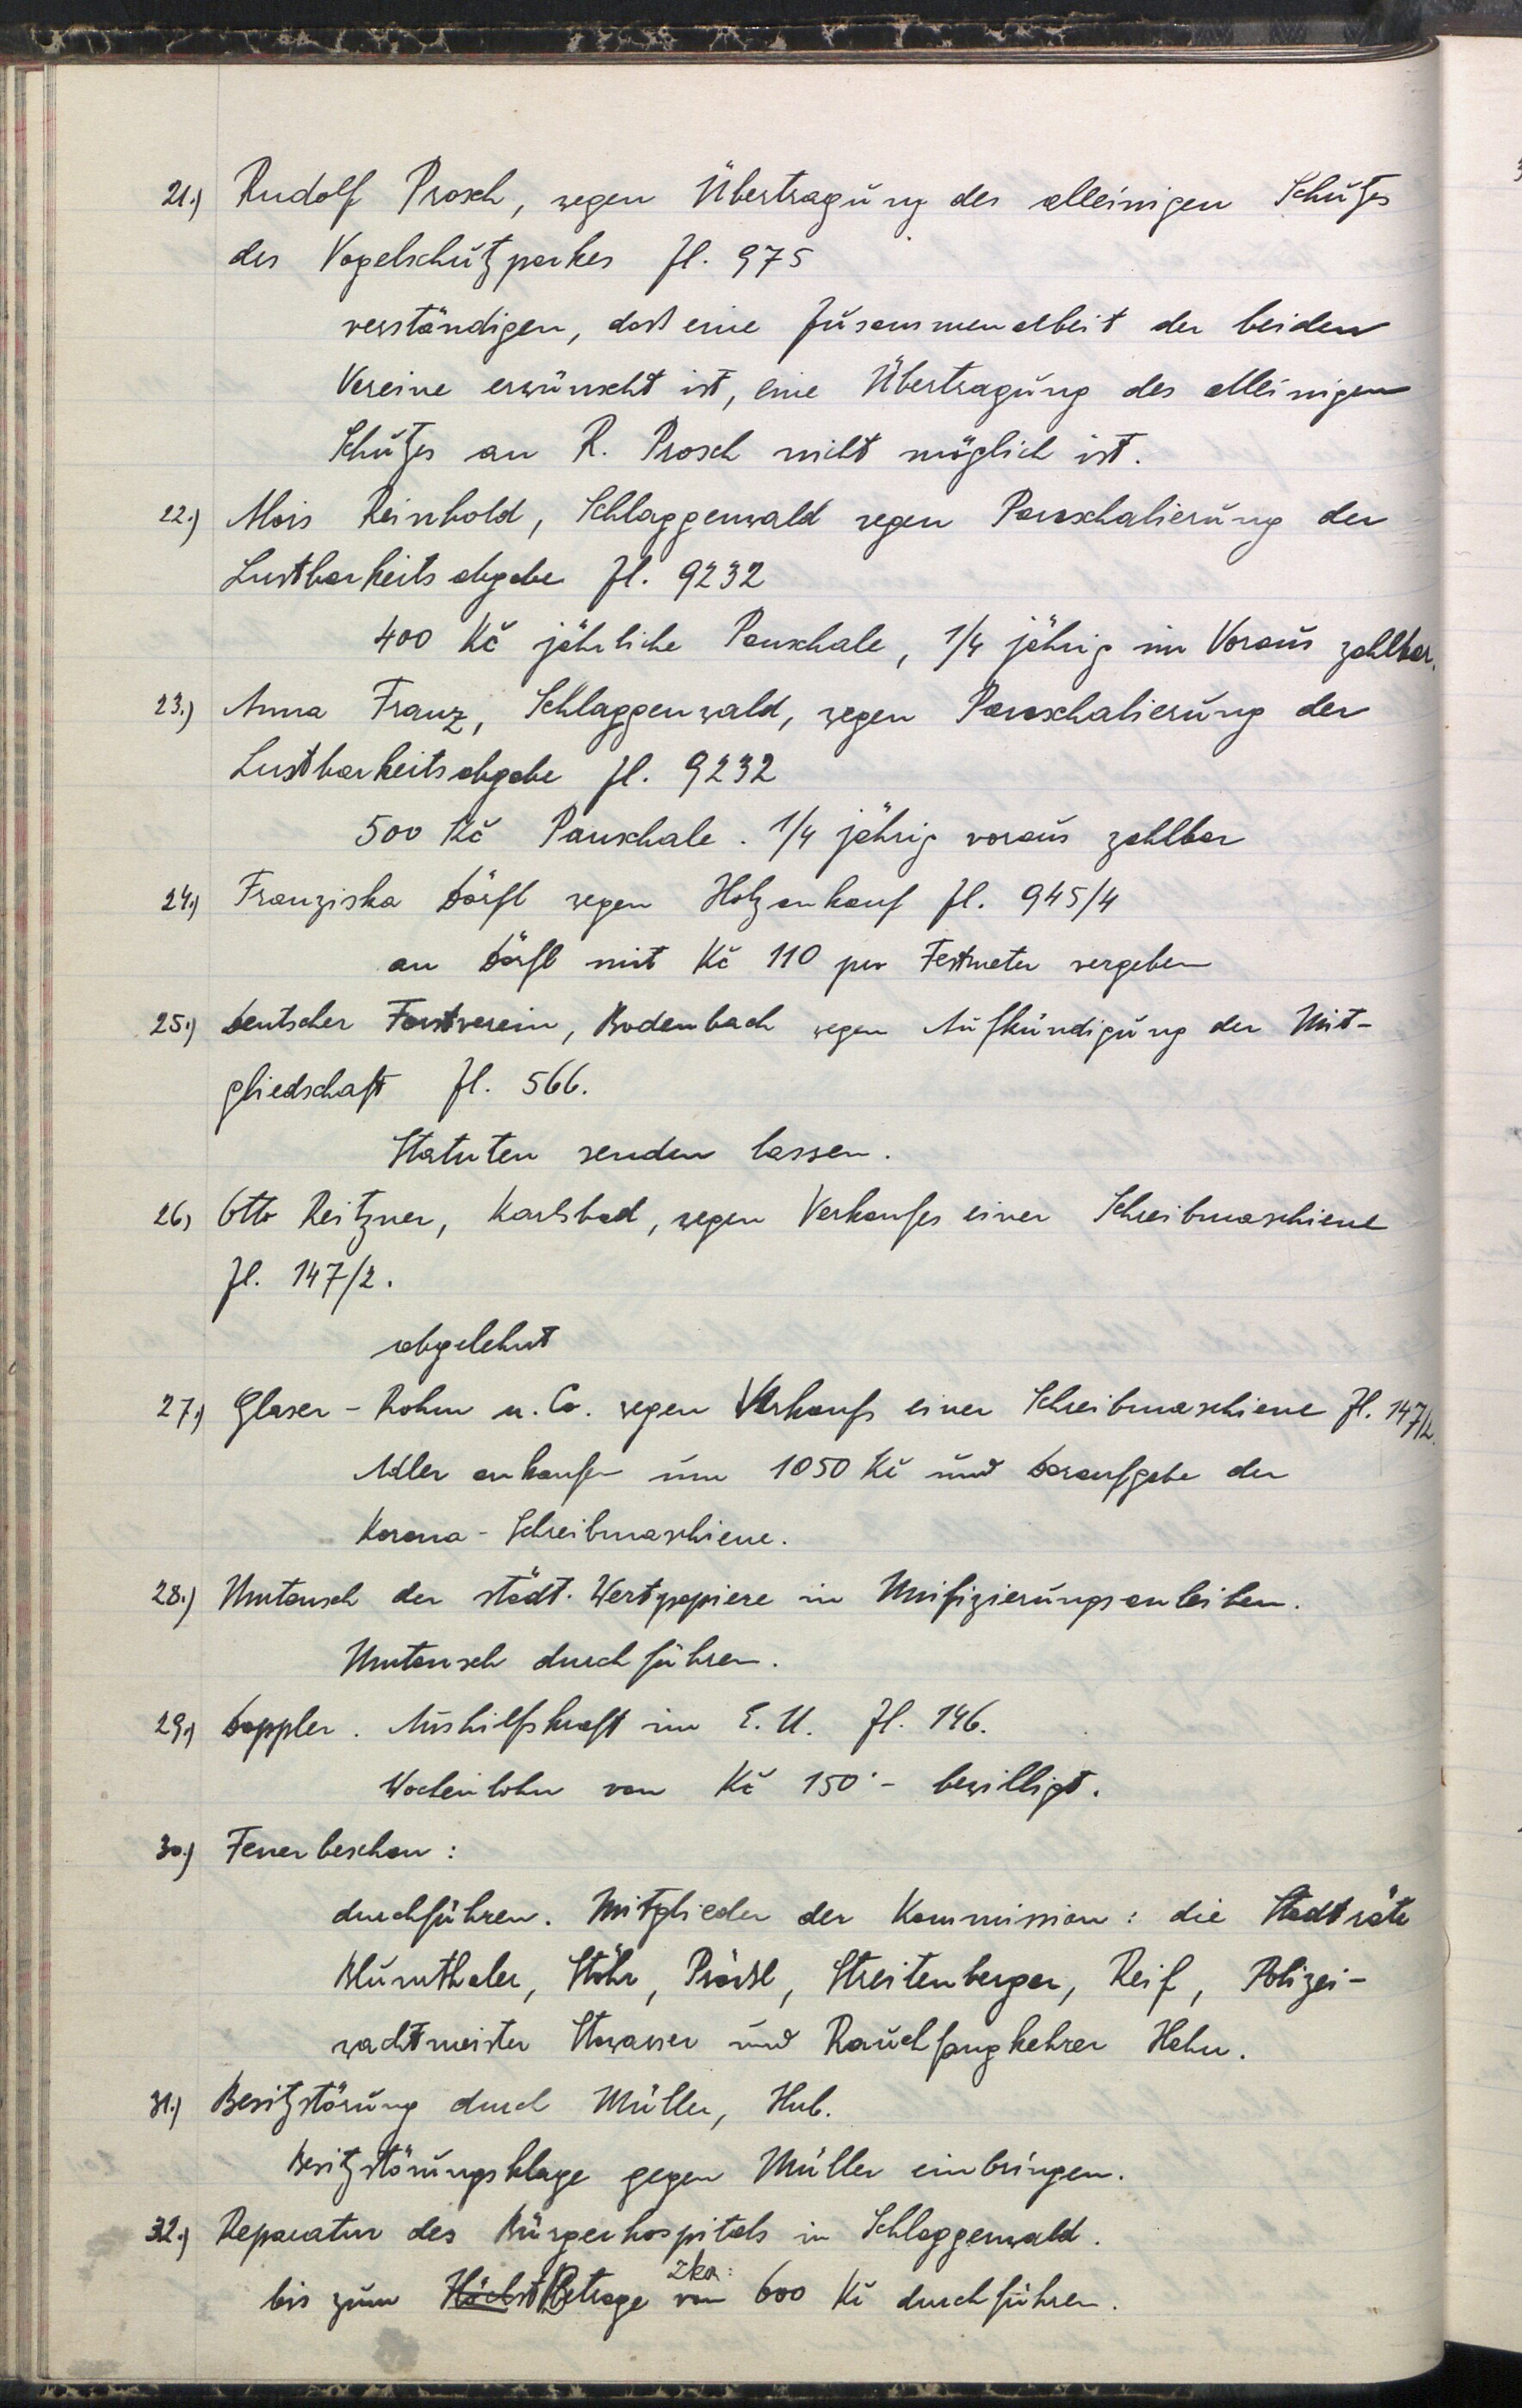 21.) Rudolf Prosch, wegen Übertragung des alleinigen Schutzes
des Vogelschutzparkes Zl. 975
verständigen, daß eine Zusammenarbeit der beiden
Vereine erwünscht ist, eine Übertragung des alleinigen
Schutzes an R. Prosch nicht möglich ist.
22.) Alois Reinhold, Schlaggenwald wegen Pauschalierung der
Lustbarkeitsabgabe Zl. 9232
400 Kč jährliche Pauschale, 1/4 jährig im Voraus zahlbar.
23.) Anna Franz, Schlaggenwald, wegen Pauschalierung der
Lustbarkeitsabgabe Zl. 9232
500 Kč Pauschale. 1/4 jährig voraus zahlbar
24.) Franziska Dörfl wegen Holzankauf Zl. 945/4
an Dörfl mit Kč 110 per Festmeter vergeben
25.) Deutscher Forstverein, Bodenbach wegen Aufkündigung der Mit-
gliedschaft Zl. 566.
Statuten senden lassen.
26) Otto Reitzner, Karlsbad, wegen Verkaufes einer Schreibmaschiene
Zl. 147/2.
abgelehnt
27.) Glaser - Rohm u. Co. wegen Verkaufs einer Schreibmaschiene Zl. 147/2.
Adler ankaufen um 1050 Kč und Daraufgabe der
Korona - Schreibmaschiene.
28.) Umtausch der städt. Wertpapiere in Unifizierungsanleihen.
Umtausch durchführen.
29.) Doppler. Aushilfskraft im E. U. Zl. 146.
Wochenlohn von Kč 150·- bewilligt.
30.) Feuerbeschau:
durchführen. Mitglieder der Kommission: die Stadträte
Blumthaler, Stöhr, Prössl, Streitenberger, Reif, Polizei-
wachtmeister Stowasser und Rauchfangkehrer Hahn.
31.) Besitzstörung durch Müller, Hub.
Besitzstörungsklage gegen Müller einbringen.
32.) Reparatur des Bürgerhospitals in Schlaggenwald.
bis zum Höchst Betrage von zka: 600 Kč durchführen.